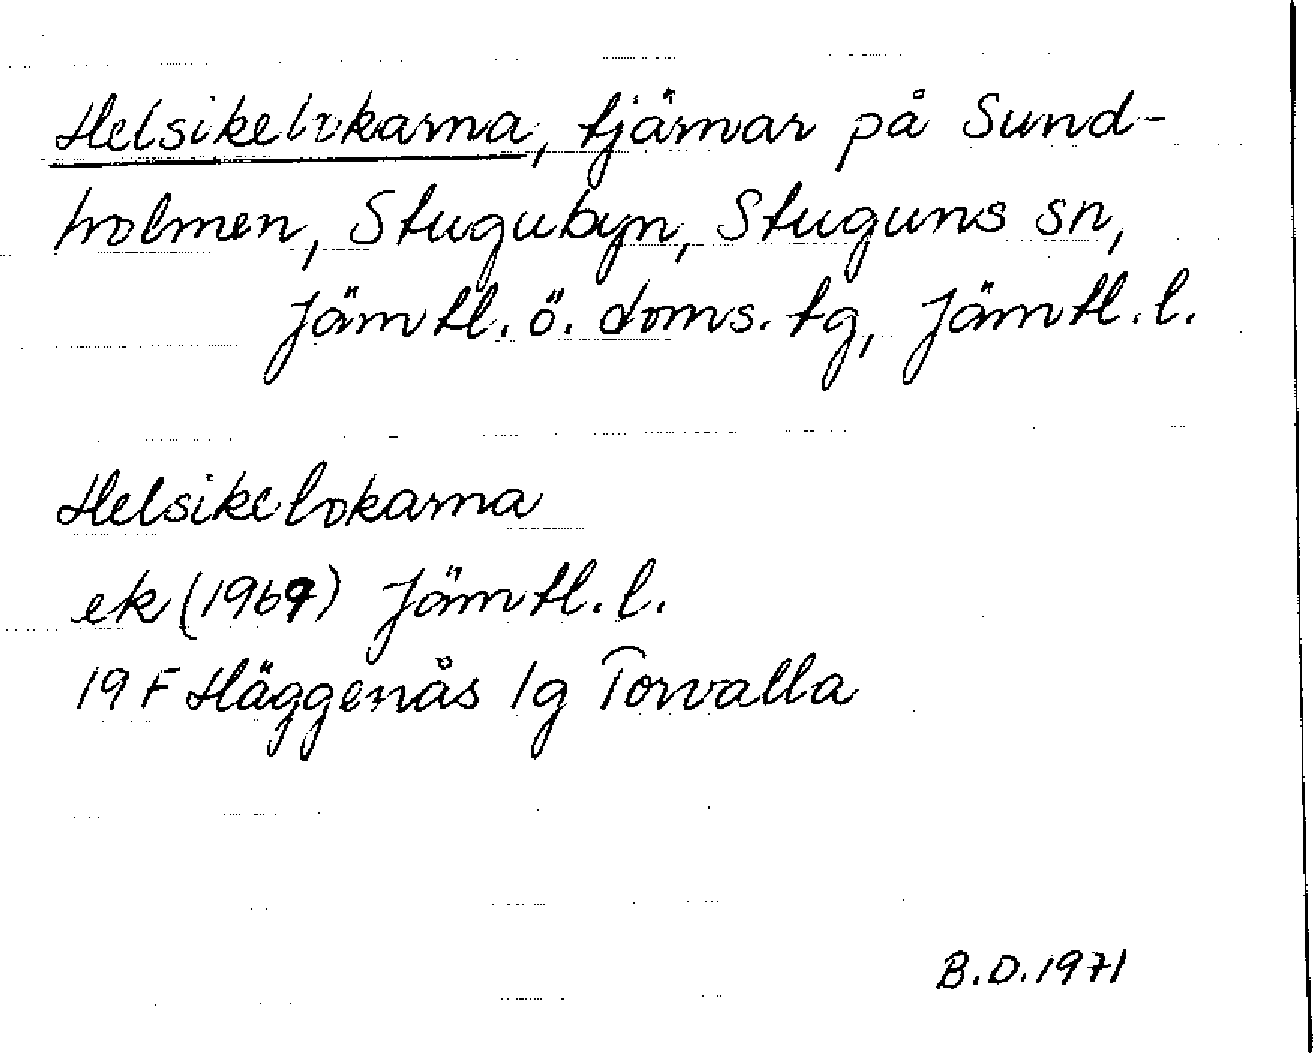 Helsikelokarna, tjärnar på Sund-
holmen, Stugubyn, Stuguns sn,
Jämtl. ö. doms. tg, Jämtl. l.
Helsikelokarna
ek (1969) Jämtl. l.
19 F Häggenås 1g Torvalla
B.D. 1971